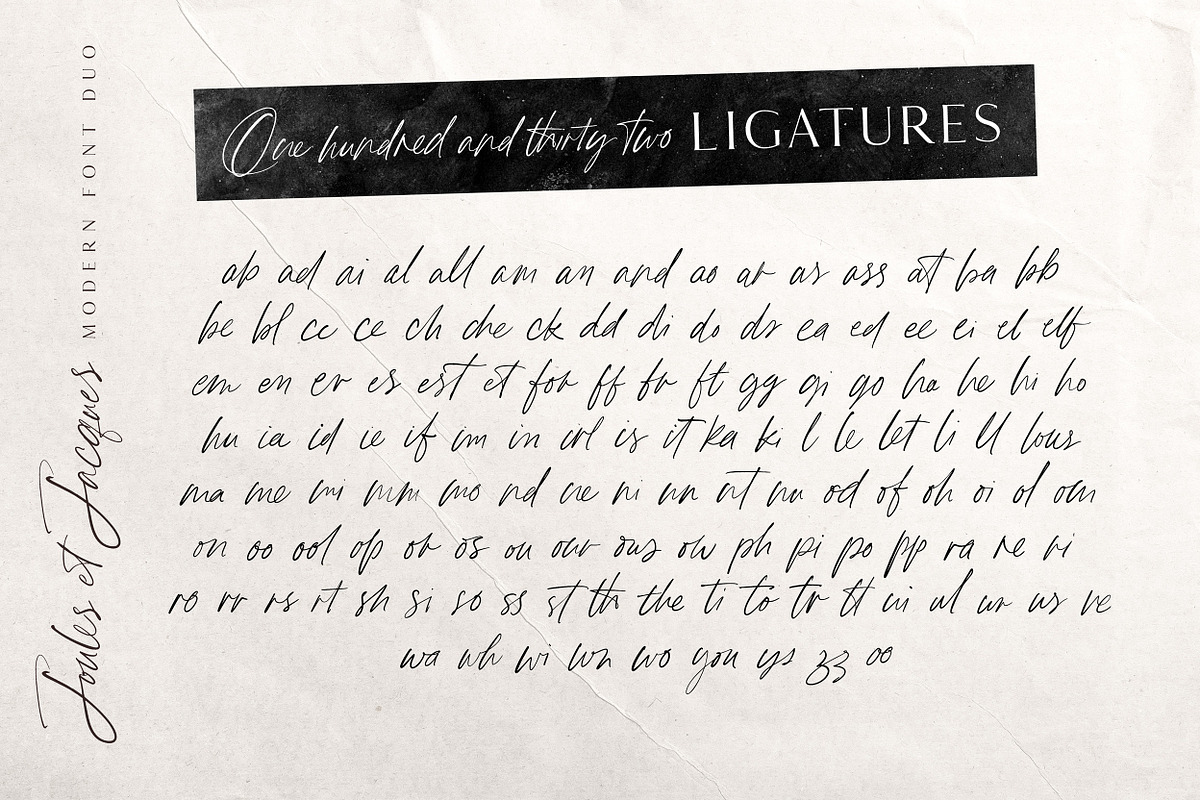 One hundred and thirty two LIGATURES
ab ad ai al all am an and ao ar as ass at ba bb
be bl cc ce ch che ck dd di do dr ea ed ee ei el elf
em en er es est et for ff fr ft gg gi go ha he hi ho
hu ia id ie if im in irl is it ka ki l le let li ll lour
ma me mi mm mo nd ne ni nn nt nu od of oh oi ol om
on oo ool op or os ou our ous ow ph pi po pp ra re ri
ro rr rs rt sh si so ss st th the ti to tr tt ui ul ur us ve
wa wh wi wn wo you ys zz oo
Joules et Jacques MODERN FONT DUO